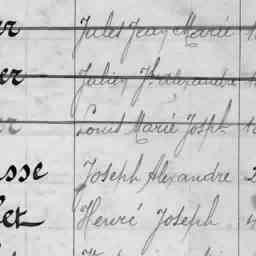 er Jules Jean Marie 1
er Julien J. B. Alexandre
er Louis Marie Joseph 1
usse Joseph Alexandre 2
let Henré Joseph